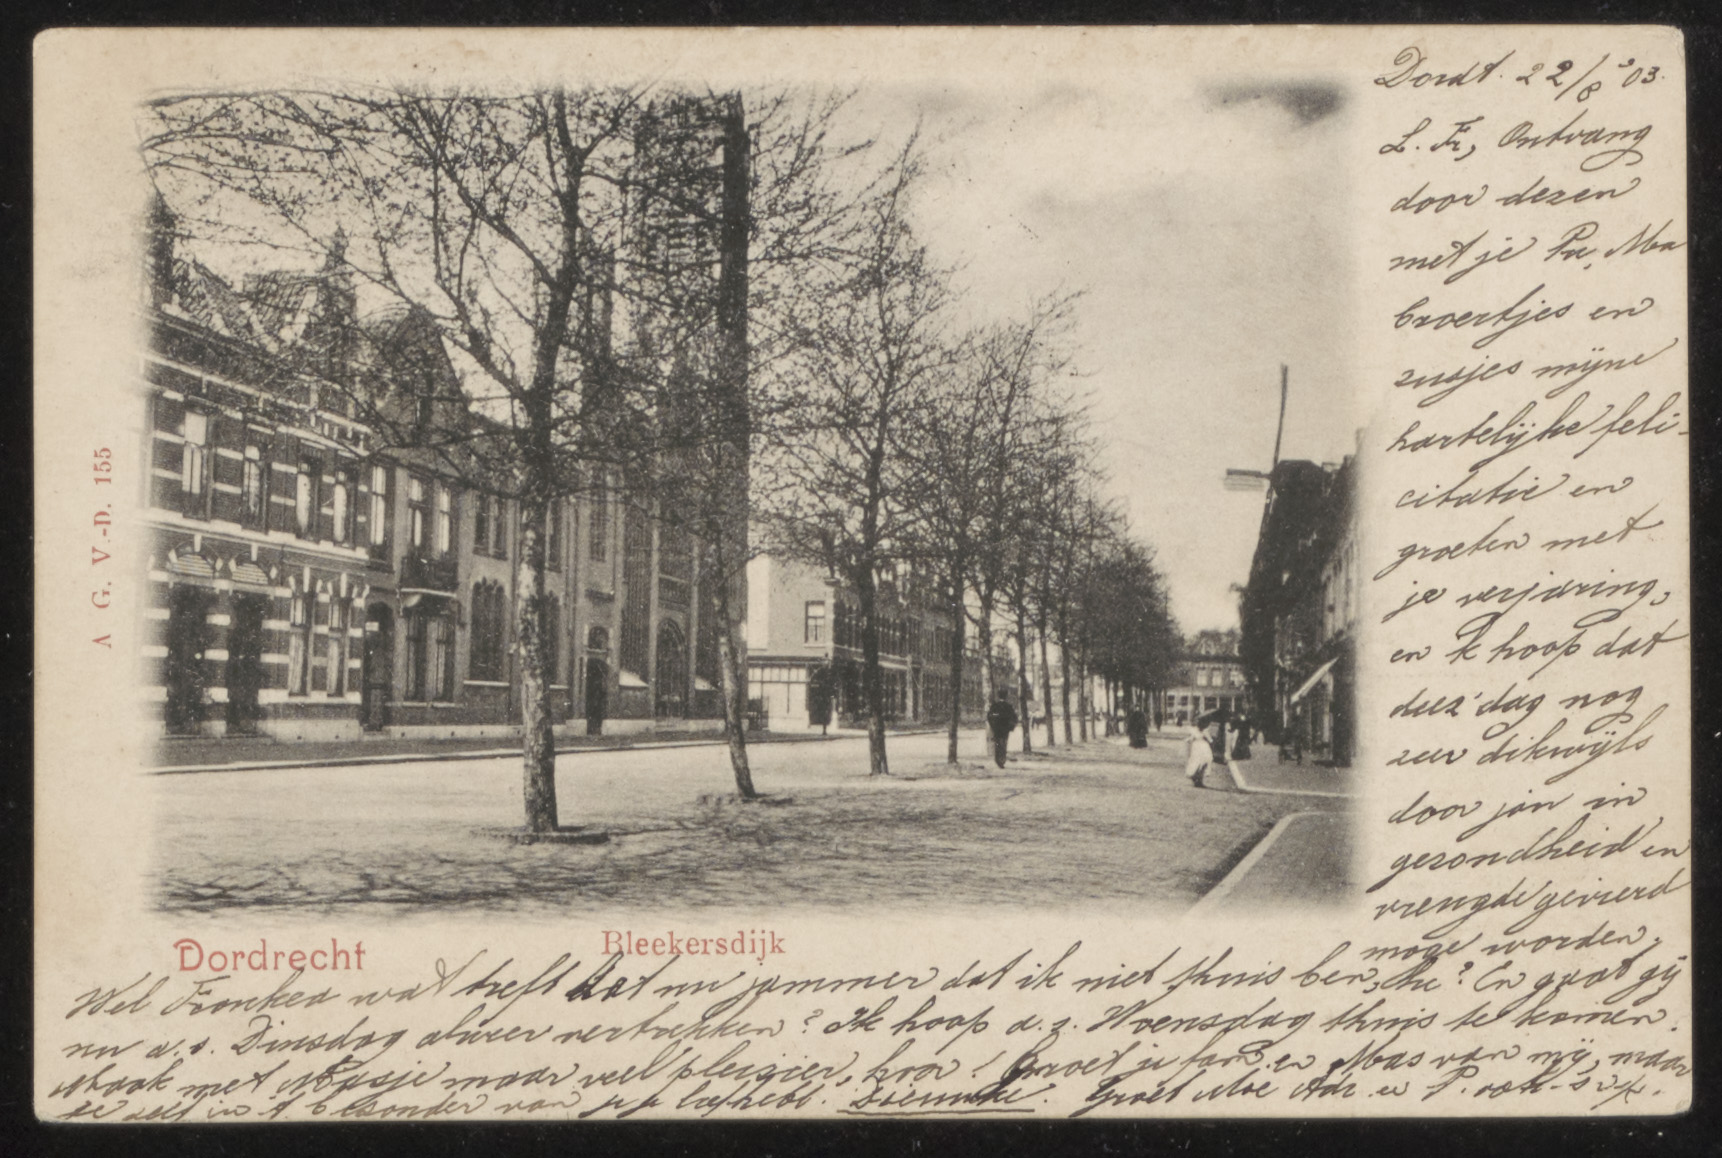 Dordt. 22/8 '03.
L. Fr, Ontvang
door dezen
met je Pa, Ma
broertjes en
zusjes mijne
hartelijke feli-
citatie en
groeten met
je verjaring,
en 'k hoop dat
deez' dag nog
zeer dikwijls
door jou in
gezondheid en
vreugde gevierd
moge worden.
A G. V.-D. 155
Dordrecht
Bleekersdijk
Wel wat treft dat nu jammer dat ik niet thuis ben, hè? En gaat gij
nu a.s. Dinsdag alweer vertrekken? Ik hoop a.s. Woensdag thuis te komen.
Maak met maar veel pleizier, hoor! Groet je fam. en van mij, maar
je zelf in 't bezonder van je je liefhebb. Groet Moe Adr. en P.